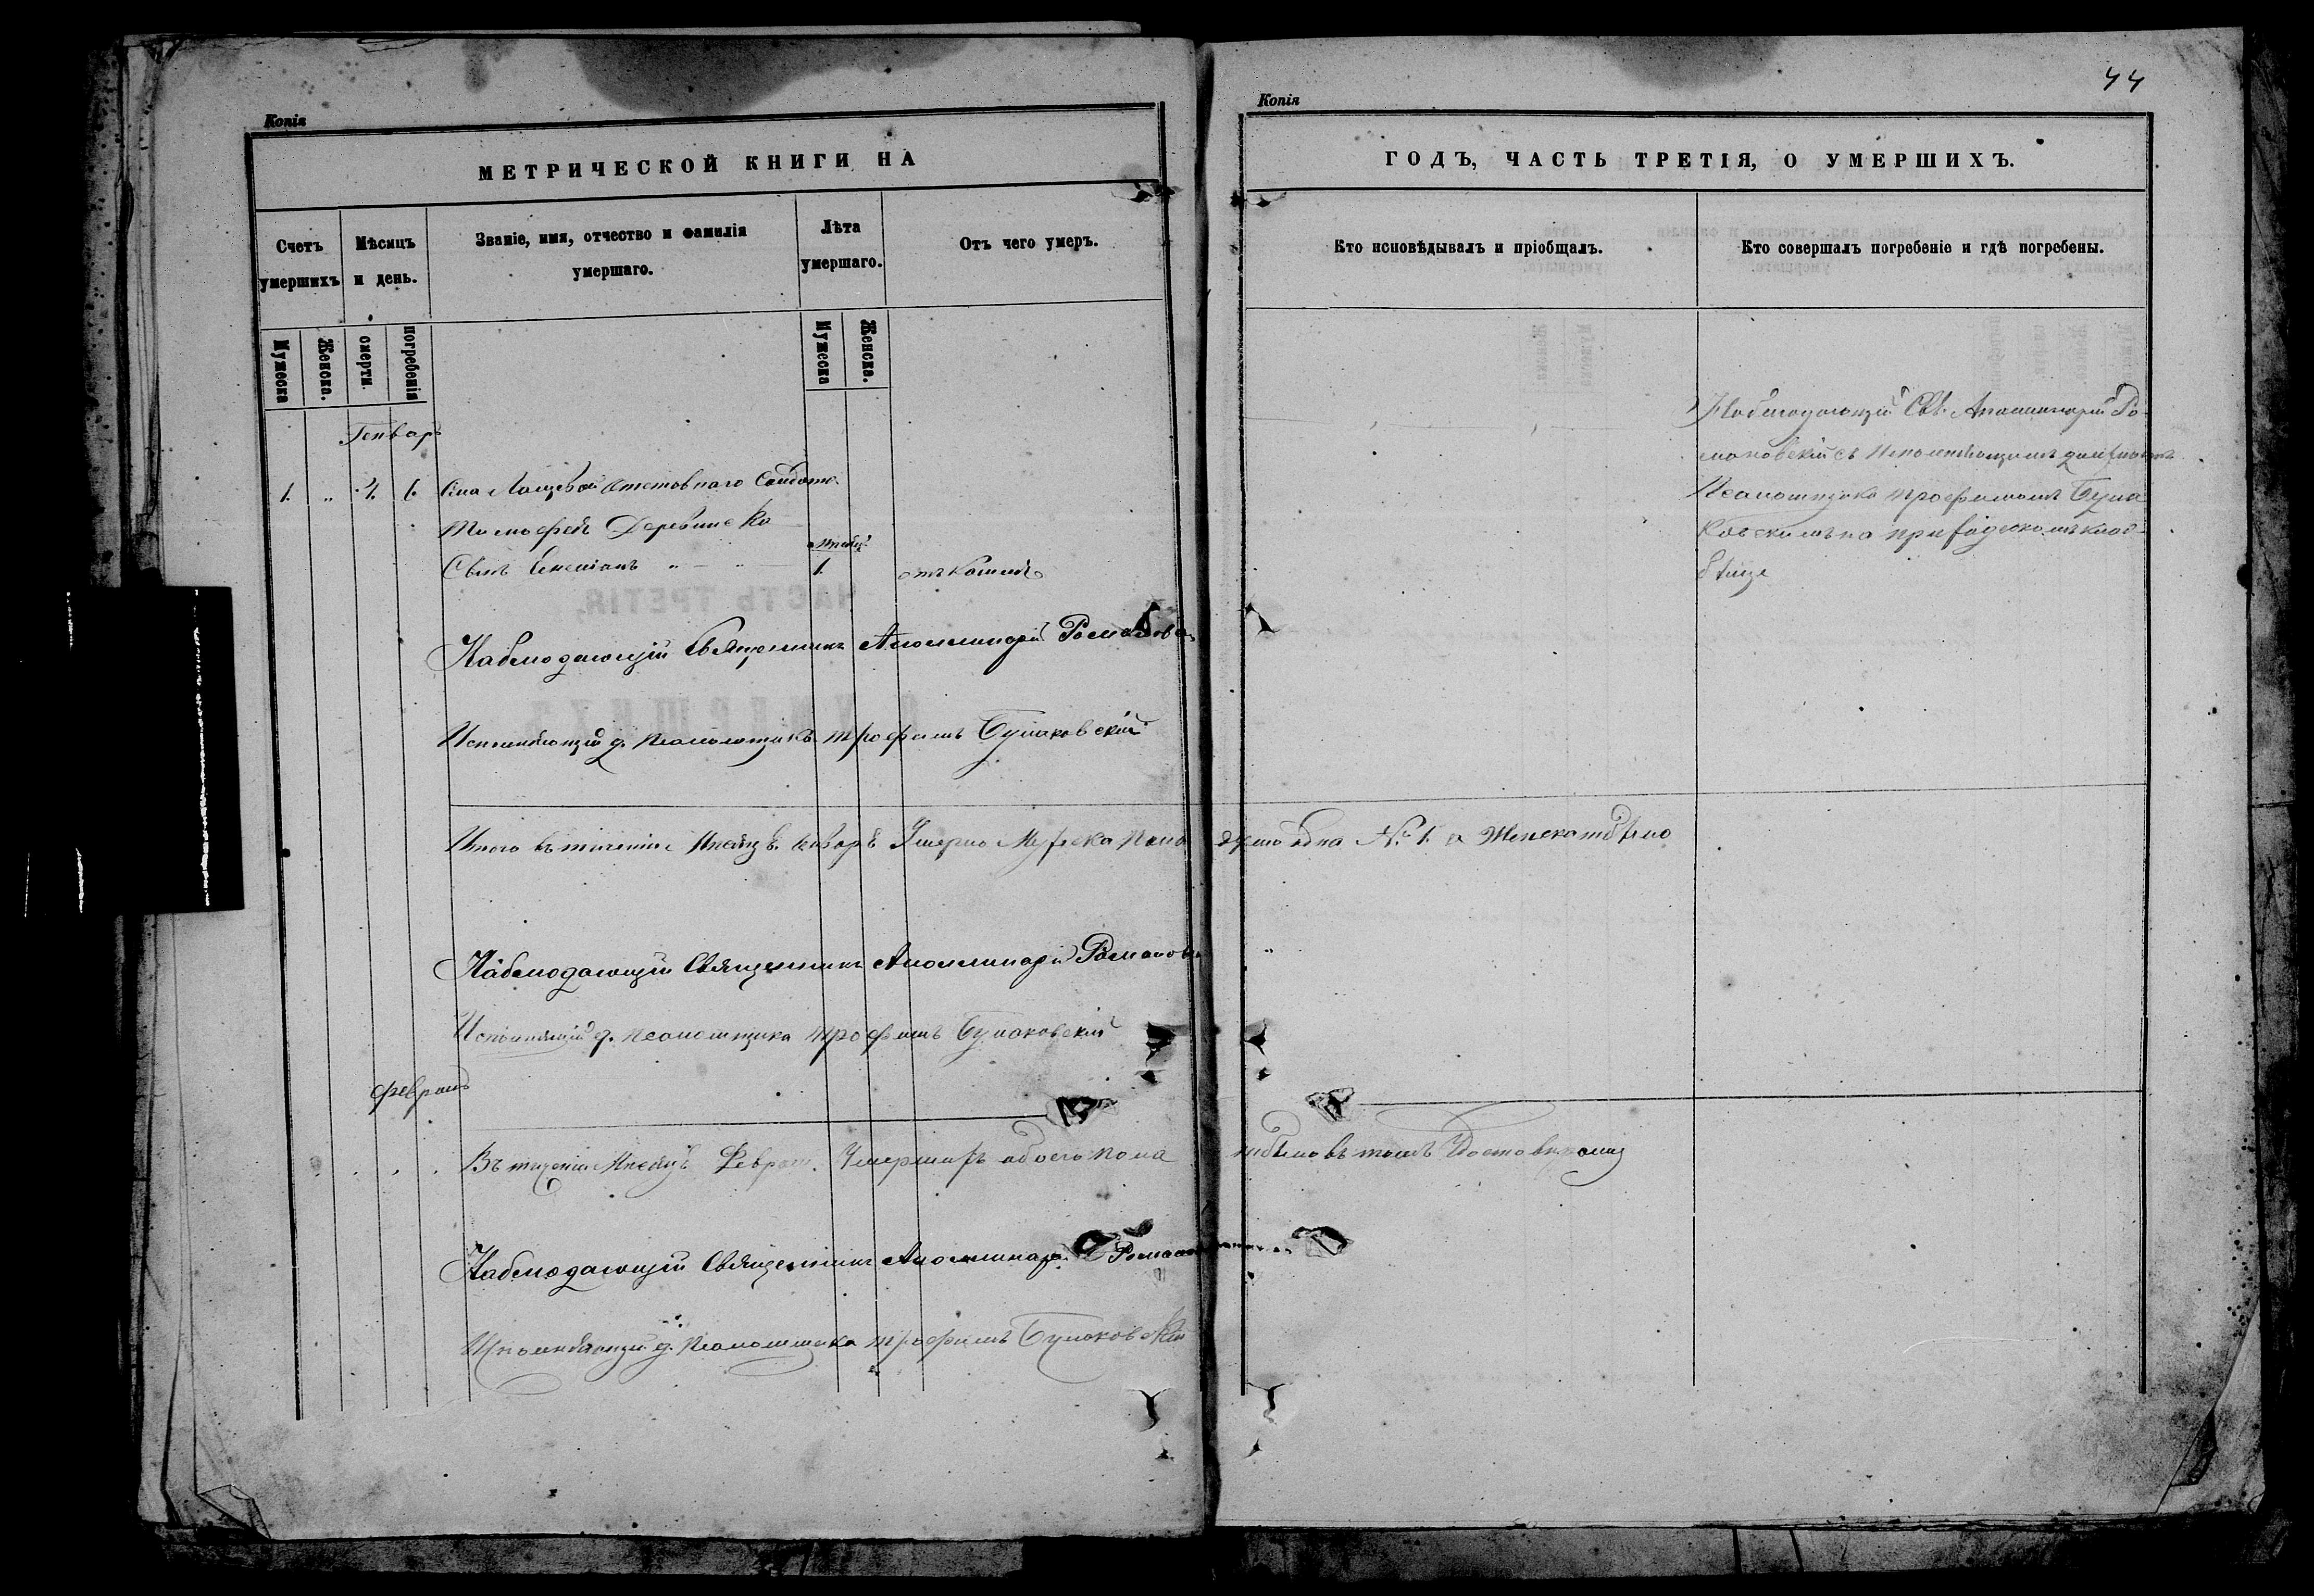 44
Копія
МЕТРИЧЕСКОЙ КНИГИ НА
Счетъ умершихъ
Мѣсяцъ и день.
Званіе, имя, отчество и фамилія умершаго.
Лѣта умершаго.
Отъ чего умеръ.
Мужеска
Женска.
смерти.
погребенія
Мужеска
Женска.
Генварь
1. „ 4. 6. Села отставнаго
Тимофей Деревинско
Сынъ 1. отъ кашля
Наблюдающій Священникъ Аполлинарій Романов
д. Псаломщика Трофимъ Булаковскій
Итого въ теченіи Генварѣ Умерло Мужеска пола одна № 1. а Женска небыло
Наблюдающій Священникъ Аполлинарій Романов
д. Псаломщика Трофимъ Булаковскій
Февраль
Въ теченіи Феврал. Умершихъ обоего пола небыло въ томъ
Наблюдающій Священникъ Аполлинарі Рома
д. Псаломщика Трофимъ Булаковскій
Копія
ГОДЪ, ЧАСТЬ ТРЕТІЯ, О УМЕРШИХЪ.
Кто исповѣдывалъ и пріобщалъ.
Кто совершалъ погребеніе и гдѣ погребены.
Наблюдающій Свя. Аполлинарій Ро-
мановскій съ
Псаломщика Трофимомъ Була
ковскимъ на приходскомъ клад-
бищѣ